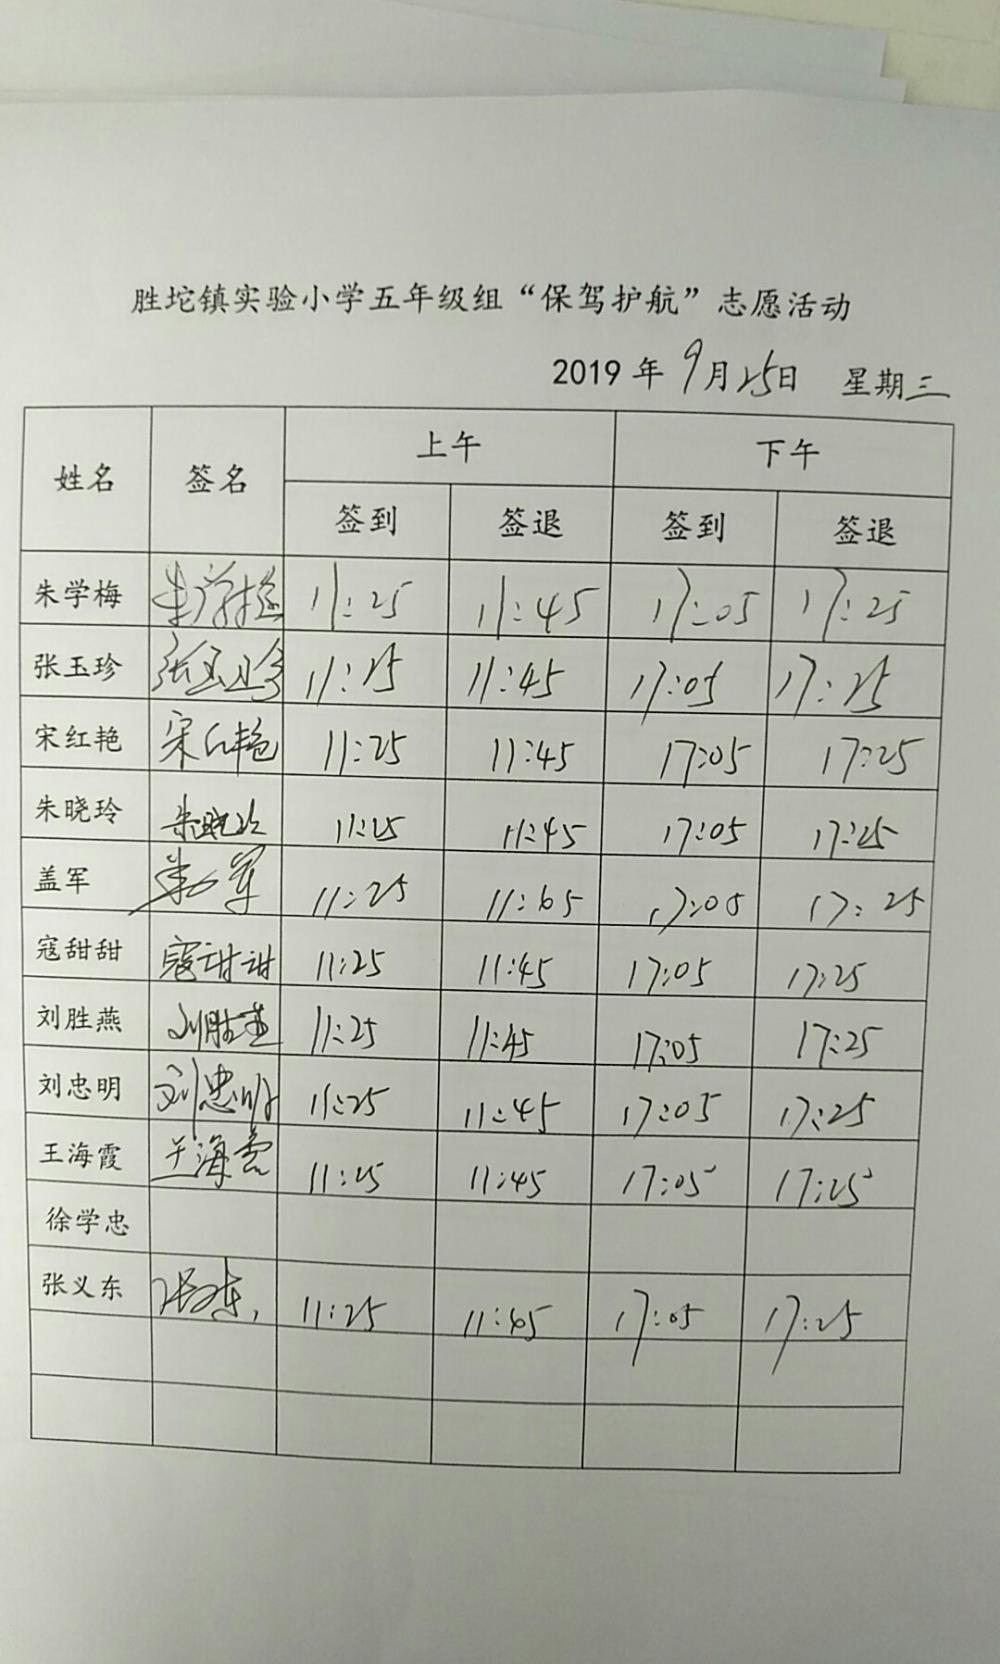 胜坨镇实验小学五年级组“保驾护航”志愿活动
2019年9月25日 星期三
姓名 签名 上午 下午
签到 签退 签到 签退
朱学梅 朱学梅 11:25 11:45 17:05 17:25
张玉珍 张玉珍 11:25 11:45 17:05 17:25
宋红艳 宋红艳 11:25 11:45 17:05 17:25
朱晓玲 朱晓玲 11:25 11:45 17:05 17:25
盖军 盖军 11:25 11:45 17:05 17:25
寇甜甜 寇甜甜 11:25 11:45 17:05 17:25
刘胜燕 刘胜燕 11:25 11:45 17:05 17:25
刘忠明 刘忠明 11:25 11:45 17:05 17:25
王海霞 王海霞 11:25 11:45 17:05 17:25
徐学忠
张义东 张义东 11:25 11:45 17:05 17:25